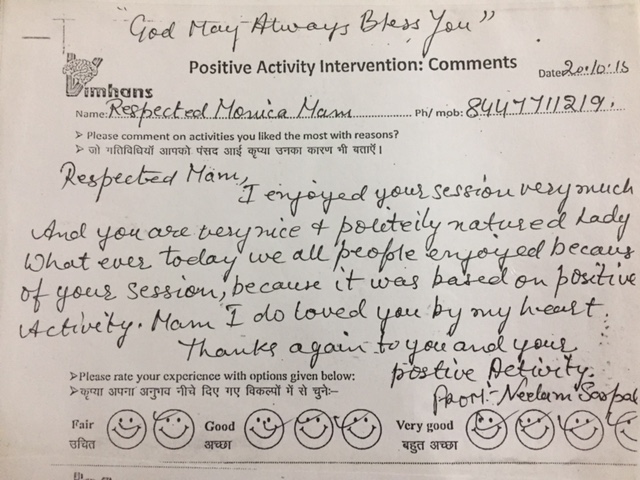 "God May Always Bless You"
Vimhans
Positive Activity Intervention: Comments
Date 20.10.15
Name: Respected Monica Mam Ph/ mob: 8447711219.
➢ Please comment on activities you liked the most with reasons?
➢ जो गतिविधियाँ आपको पंसद आई कृप्या उनका कारण भी बताऐं।
Respected Mam,
I enjoyed your session very much
And you are very nice & politeily natured Lady
What ever today we all people enjoyed becaus
of your session, because it was based on positive
Activity. Mam I do loved you by my heart.
Thanks again to you and your
postive Activity.
➢Please rate your experience with options given below:
From:- Neelam
➢कृप्या अपना अनुभव नीचे दिए गए विकल्पों में से चुनेः-
Fair Good Very good
उचित अच्छा बहुत अच्छा